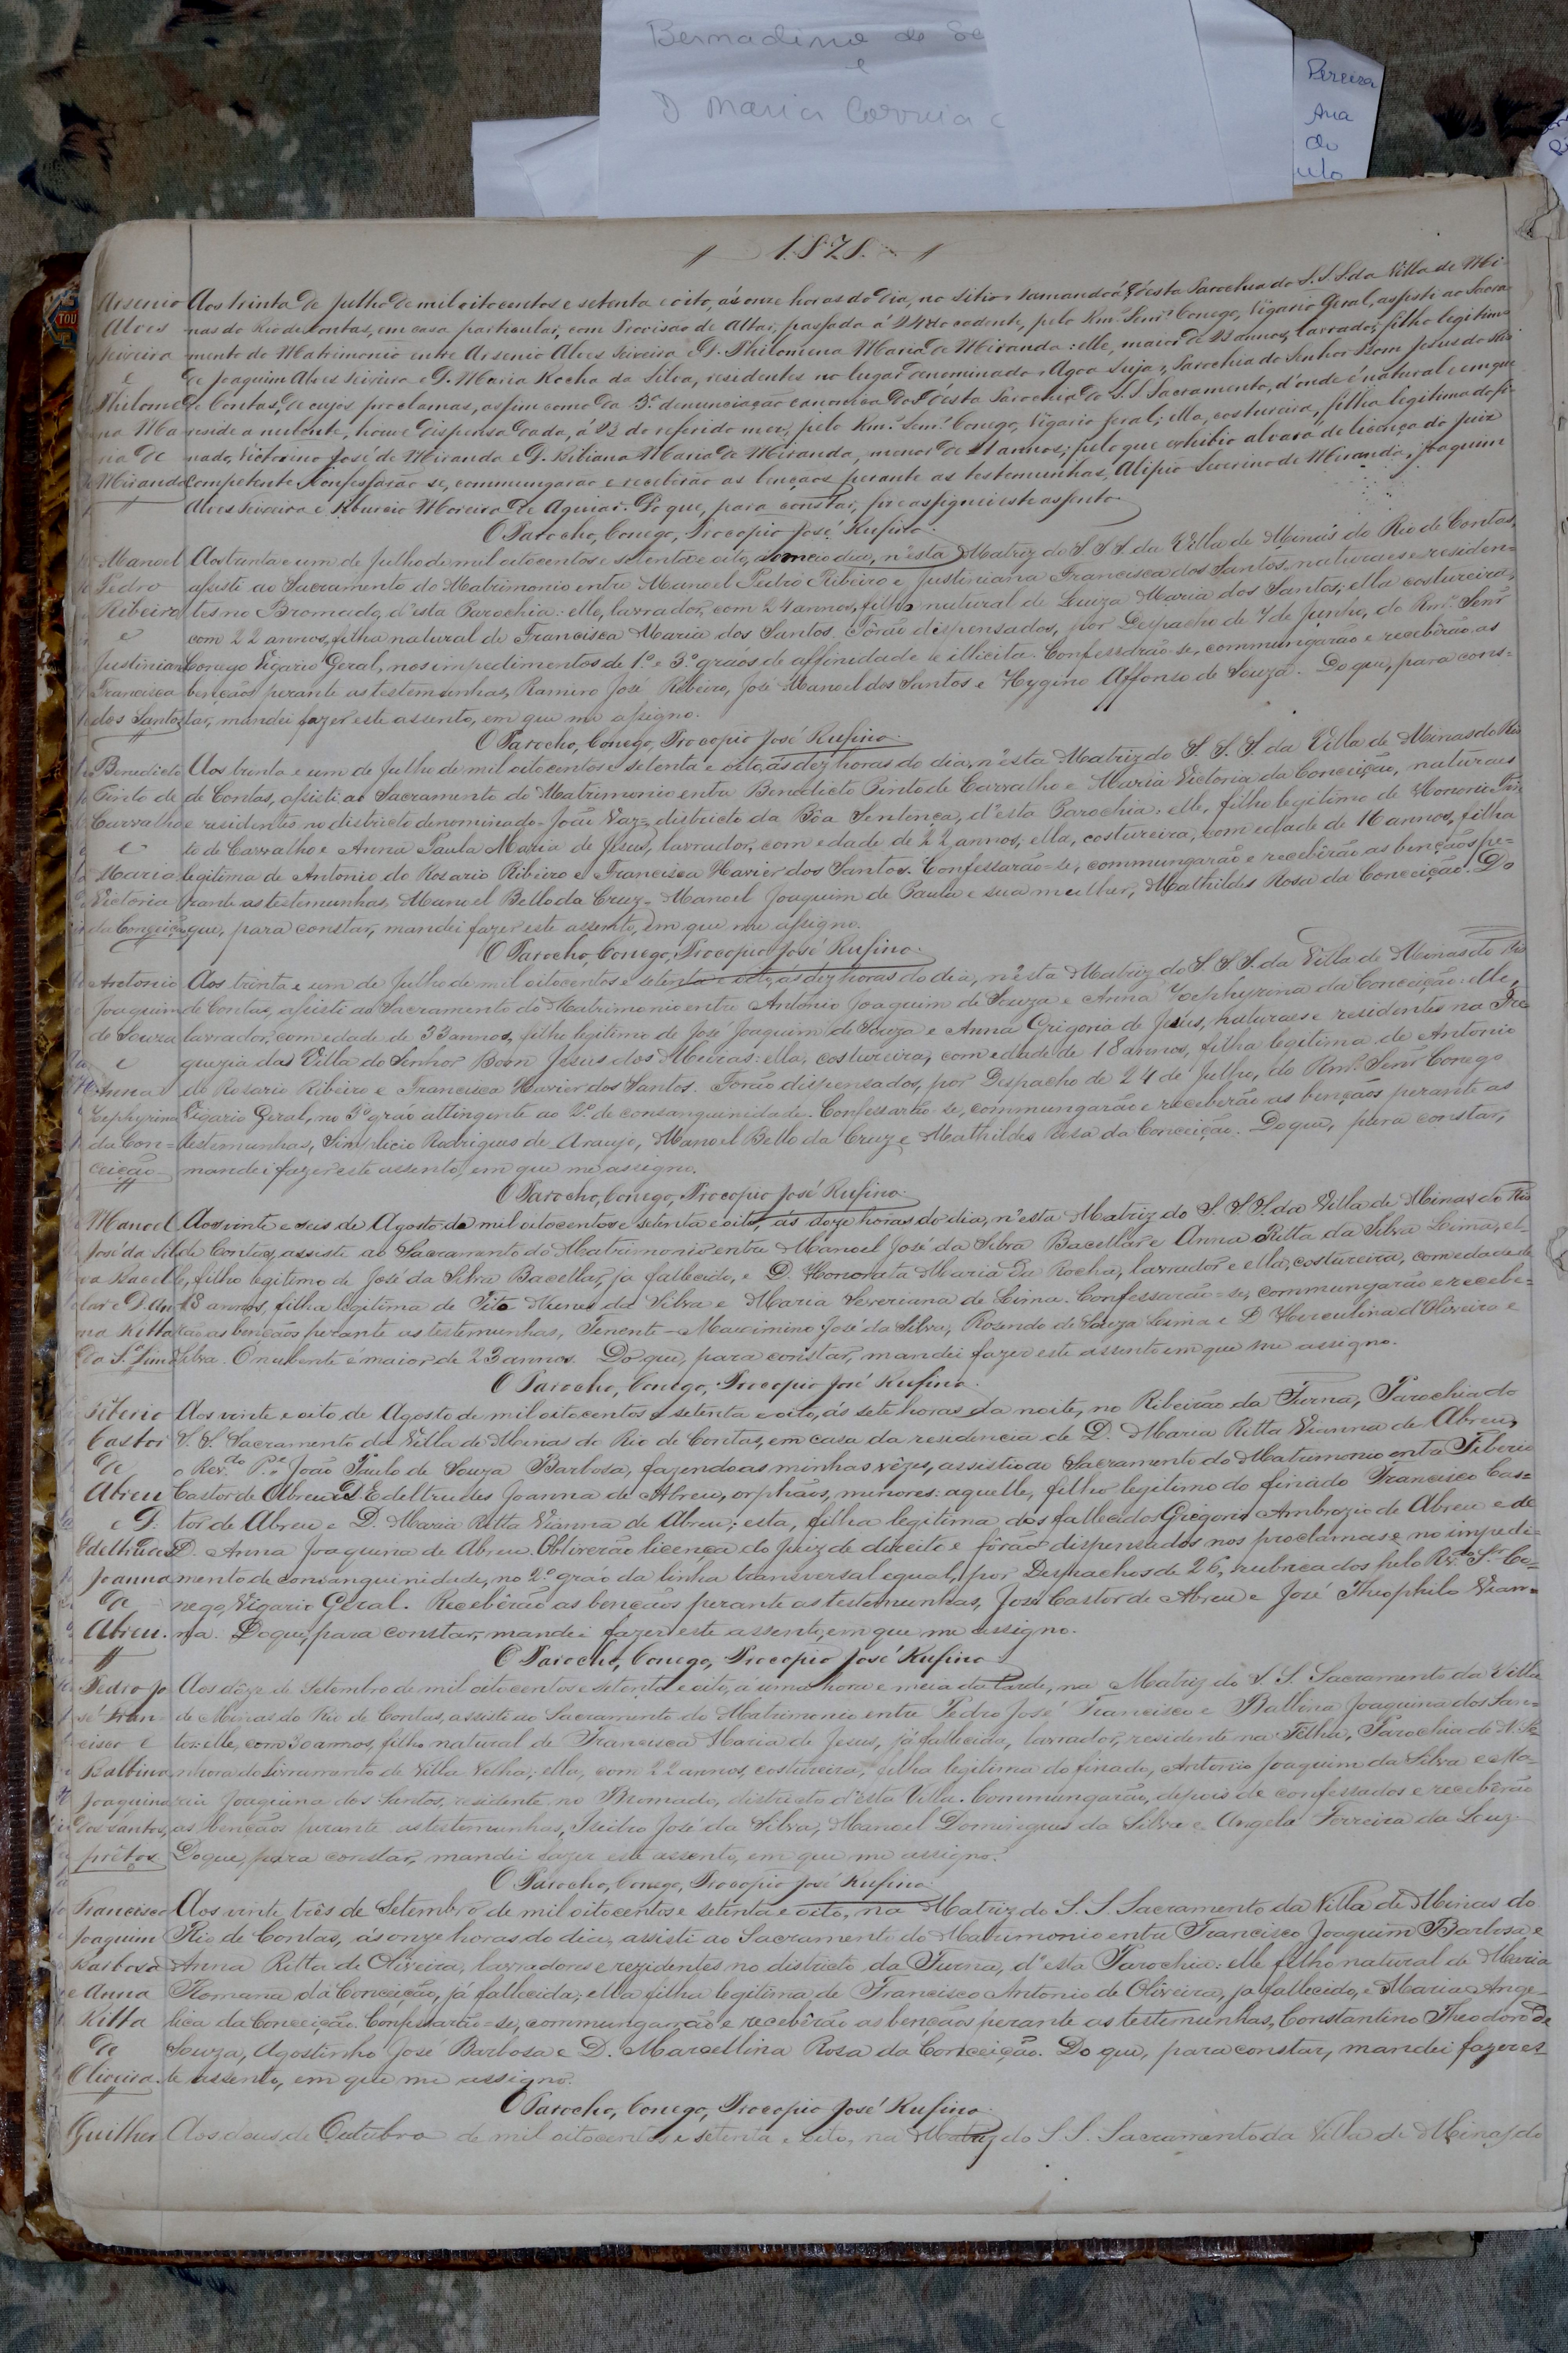 Bernadino de Se
e
D Maria Correia c
Pereira
Ana
do
ulo
1878.
Arsenio Aos trinta de Julho de mil oito centos e setenta e oito, ás onze horas do dia, no sitio Tamandoá, d'esta Parochia do S. S. S. da Villa de Mi-
Alves nas do Rio de Contas, em casa particular, com Provisão de Altar, passada á 24 do cadente, pelo Rmº Senr. Conego, Vigario Geral, assisti ao Sacra-
Teixeira mento do Matrimonio entre Arsenio Alves Teixeira e D. Philomena Maria de Miranda: elle, maior de 23 annos, lavrador, filho legitimo
e de Joaquim Alves Teixeira e D. Maria Rocha da Silva, residentes no lugar denominado Agoa Suja, Parochia do Senhor Bom Jesus do Rio
Philome de Contas, de cujos proclamas, assim como da 3ª denunciação canonica d'esta Parochia do S. S. Sacramento, d'onde é natural e em que
na Ma reside a nubente, houve dispensa dada, á 23 do referido mez, pelo Rmº Senr. Conego, Vigario Geral; ella, costureira, filha legitima do fi-
ria de nado, Victorino José de Miranda e D. Liliana Maria de Miranda, menor de 21 annos; pelo que exhibio alvará de licença do Juiz
Miranda competente. Confessarão-se, commungarão e receberão as bençãos perante as testemunhas, Alipio Severino de Miranda, Joaquim
Alves Teixeira e Tiburcio Moreira de Aguiar. Do que, para constar, fiz e assignei este assento.
O Parocho, Conego, Procopio José Rufino.
Manoel Aos trinta e um de Julho de mil oito centos e setenta e oito, ao meio dia, n'esta Matriz do S. S. S. da Villa de Minas do Rio de Contas,
Pedro assisti ao Sacramento do Matrimonio entre Manoel Pedro Ribeiro e Justiniana Francisca dos Santos, naturaes e residen=
Ribeiro tes no Bromado, d'esta Parochia: elle, lavrador, com 24 annos, filho natural de Luiza Maria dos Santos, ella costureira,
e com 22 annos, filha natural de Francisca Maria dos Santos. Fôrão dispensados, por Despacho de 7 de Junho, do Rmº Senr
Justinian Conego Vigario Geral, nos impedimentos de 1º e 3º gráos de affinidade illicita. Confessarão-se, commungarão e receberão as
Francisca bençãos perante as testemunhas, Ramiro José Ribeiro, José Manoel dos Santos e Hygino Affonso de Souza. Do que, para cons=
dos Santos tar, mandei fazer este assento, em que me assigno.
O Parocho, Conego, Procopio José Rufino.
Benedicto Aos trinta e um de Julho de mil oito centos e setenta e oito, ás dez horas do dia, n'esta Matriz do S. S. S. da Villa de Minas do Rio
Pinto de de Contas, assisti ao Sacramento do Matrimonio entre Benedicto Pinto de Carvalho e Maria Victoria da Conceição, naturaes
Carvalho e residentes no districto denominado João Vaz, districto da Bôa Sentença, d'esta Parochia: elle, filho legitimo de Honorio Pin
e to de Carvalho e Anna Paula Maria de Jesus, lavrador, com edade de 22 annos, ella, costureira, com edade de 16 annos, filha
Maria legitima de Antonio do Rosario Ribeiro e Francisca Xavier dos Santos. Confessarão=se, commungarão e receberão as bençãos pe=
Victoria rante as testemunhas, Manoel Bello da Cruz, Manoel Joaquim de Paula e sua mulher, Mathildes Rosa da Conceição. Do
da Conceição que, para constar, mandei fazer este assento, em que me assigno.
O Parocho, Conego, Procopio José Rufino.
Antonio Aos trinta e um de Julho de mil oito centos e setenta e oito, ás dez horas do dia, n'esta Matriz do S. S. S. da Villa de Minas do Rio
Joaquim de Contas, assisti ao Sacramento do Matrimonio entre Antonio Joaquim de Souza e Anna Zephyrina da Conceição: elle,
de Souza lavrador, com edade de 33 annos, filho legitimo de José Joaquim de Souza e Anna Grigoria de Jesus, naturaes e residentes na Fre
e guezia da Villa do Senhor Bom Jesus dos Meiras: ella, costureira, com edade de 18 annos, filha legitima de Antonio
Anna do Rosario Ribeiro e Francisca Xavier dos Santos. Forão dispensados, por Despacho de 24 de Julho, do Rmº Senr Conego
Zephyrina Vigario Geral, no 3º grao attingente ao 2º de consanguinidade. Confessarão-se, commungarão e receberão as bençãos perante as
da Con= testemunhas, Simplicio Rodrigues de Araujo, Manoel Bello da Cruz e Mathildes Rosa da Conceição. Do que, para constar,
ceição mandei fazer este assento, em que me assigno.
O Parocho, Conego, Procopio José Rufino.
Manoel Aos vinte e seis de Agosto de mil oito centos e setenta e oito, ás doze horas do dia, n'esta Matriz do S. S. S. da Villa de Minas do Rio
José da Sil de Contas, assisti ao Sacramento do Matrimonio entre Manoel José da Silva Bacellar e Anna Ritta da Silva Lima, el-
va Bacel le, filho legitimo de José da Silva Bacellar, ja fallecido, e D. Honorata Maria da Rocha, lavrador e ella, costureira, com edade de
lar e D. An 18 annos, filha legitima de Tito Nunes da Silva e Maria Severiana de Lima. Confessarão=se, commungarão e recebe=
na Ritta rão as bençãos perante as testemunhas, Tenente Maximino José da Silva, Rozendo de Souza Lima e D. Herculina d'Oliveira e
da Sª Lima Silva. O nubente é maior de 23 annos. Do que, para constar, mandei fazer este assento em que me assigno.
O Parocho, Conego, Procopio José Rufino.
Tiberio Aos vinte e oito de Agosto de mil oito centos e setenta e oito, ás sete horas da noite, no Ribeirão da Furna, Parochia do
Castor S. S. Sacramento da Villa de Minas do Rio de Contas, em casa da residencia de D. Maria Ritta Vianna de Abreu,
de o Rev.do P.e João Paulo de Souza Barbosa, fazendo as minhas vêzes, assistio ao Sacramento do Matrimonio entre Tiberio
Abreu Castor de Abreu e D. Edeltrudes Joanna de Abreu, orphãos, menores: aquelle, filho legitimo do finado Francisco Cas=
e D. tor de Abreu e D. Maria Ritta Vianna de Abreu; esta, filha legitima dos fallecidos Gregorio Ambrozio de Abreu e de
Edeltrudes D. Anna Joaquina de Abreu. Obtiverão licença do Juiz de direito e fôrão dispensados nos proclamas e no impedi=
Joanna mento de consanguinidade, no 2º grao da linha transversal egual, por Despachos de 26, rubricados pelo Rdo Sr. Co=
de nego, Vigario Geral. Receberão as bençãos perante as testemunhas, José Castor de Abreu e José Theophilo Vian=
Abreu. na. Do que, para constar, mandei fazer este assento, em que me assigno.
O Parocho, Conego, Procopio José Rufino
Pedro Jo Aos dôze de Setembro de mil oito centos e setenta e oito, á uma hora e meia da tarde, na Matriz do S. S. Sacramento da Villa
sé Fran= de Minas do Rio de Contas, assisti ao Sacramento do Matrimonio entre Pedro José Francisco e Balbina Joaquina dos San=
cisco e tos: elle, com 30 annos, filho natural de Francisca Maria de Jesus, já fallecida, lavrador, residente na Filha, Parochia de N. Se
Balbina nhora do Livramento de Villa Velha; ella, com 22 annos, costureira, filha legitima do finado, Antonio Joaquim da Silva e Ma=
Joaquina ria Joaquina dos Santos, residente no Bromado, districto d'esta Villa. Commungarão, depois de confessados e receberão
dos Santos, as bençãos perante as testemunhas, Isidio José da Silva, Manoel Domingues da Silva e Angelo Ferreira da Luz.
prêtos Do que, para constar, mandei fazer este assento, em que me assigno.
O Parocho, Conego, Procopio José Rufino.
Francisco Aos vinte três de Setembro de mil oito centos e setenta e oito, na Matriz do S. S. Sacramento da Villa de Minas do
Joaquim Rio de Contas, ás onze horas do dia, assisti ao Sacramento do Matrimonio entre Francisco Joaquim Barbosa e
Barbosa Anna Ritta de Oliveira, lavradores e rezidentes no districto da Furna, d'esta Parochia: elle filho natural de Maria
e Anna Romana da Conceição, já fallecida; ella filha legitima de Francisco Antonio de Oliveira, ja fallecido, e Maria Ange-
Ritta lica da Conceição. Confessarão=se, commungarão e receberão as bençãos perante as testemunhas, Constantino Theodoro de
de Souza, Agostinho José Barbosa e D. Marcellina Rosa da Conceição. Do que, para constar, mandei fazer es
Oliveira. te assento, em que me assigno.
O Parocho, Conego, Procopio José Rufino.
Guilher Aos dous de Outubro de mil oito centos e setenta e oito, na Matriz do S. S. Sacramento da Villa de Minas do